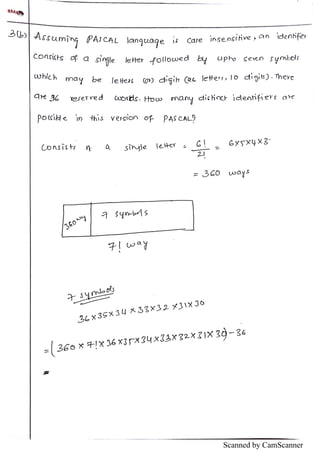 3(b) Assuming PASCAL language is care insensitive, an identifer
consists of a single letter followed by upto seven symbols
which may be letters (or) digits (26 letters, 10 digits). There
are 36 reserred words. How many distinct identifiers are
possible in this version of PASCAL?
Consists of a single letter = 6!/2! = 6x5x4x3
= 360 ways
360 way 7 symbols
7! way
7 symbols
36x35x34x33x32x31x30
= (360 x 7! x 36x35x34x33x32x31x30) - 36
Scanned by CamScanner